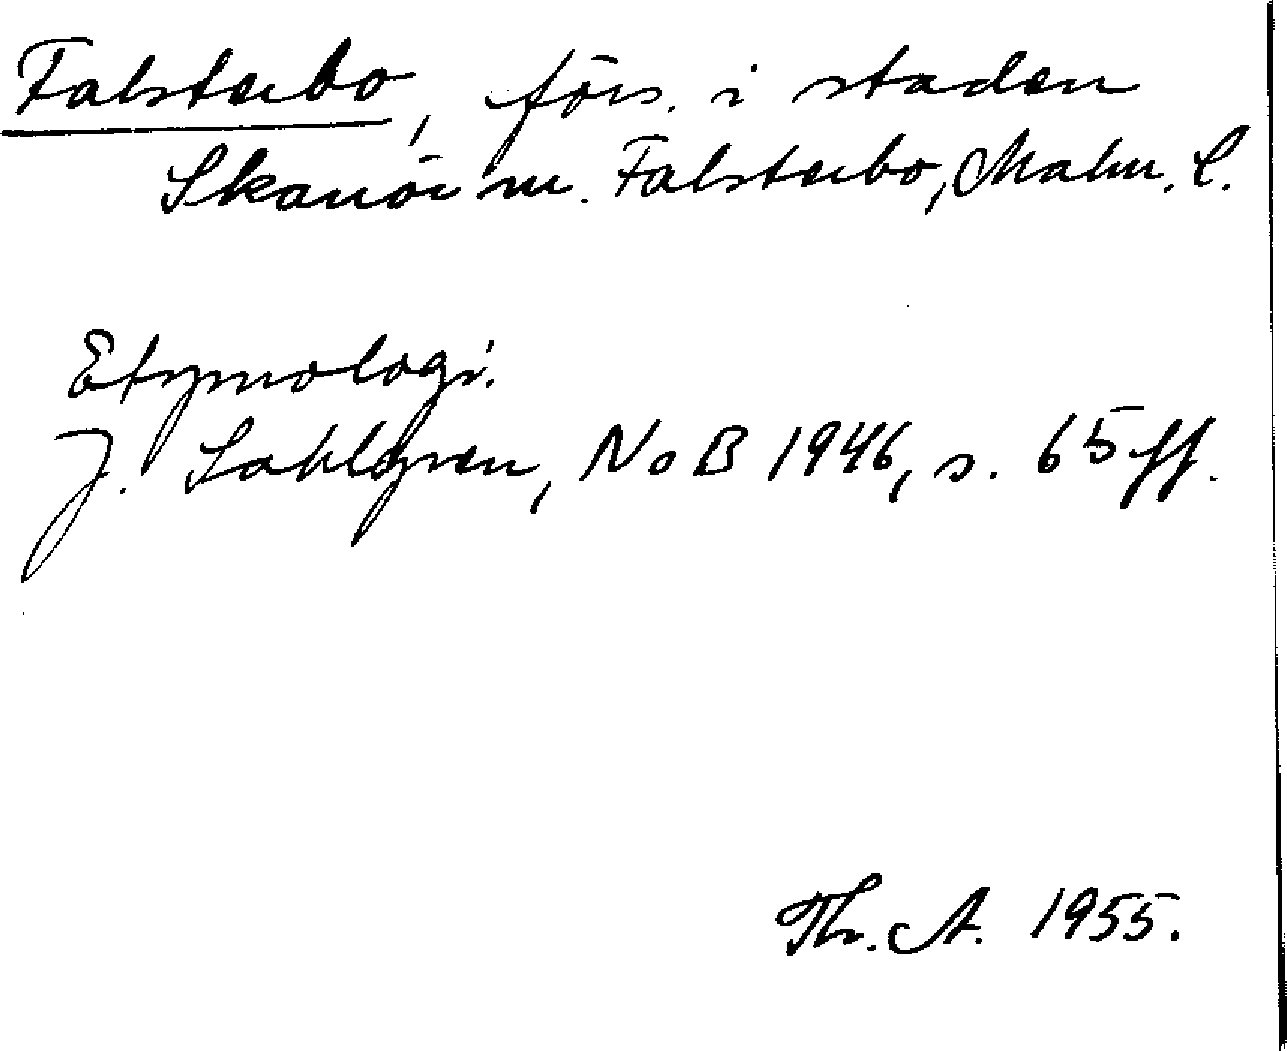 Falsterbo, förs. i staden
Skanör m. Falsterbo, Malm. L.
Etymologi.
J. Sahlgren, NoB 1946, s. 65 ff.
Th. A. 1955.